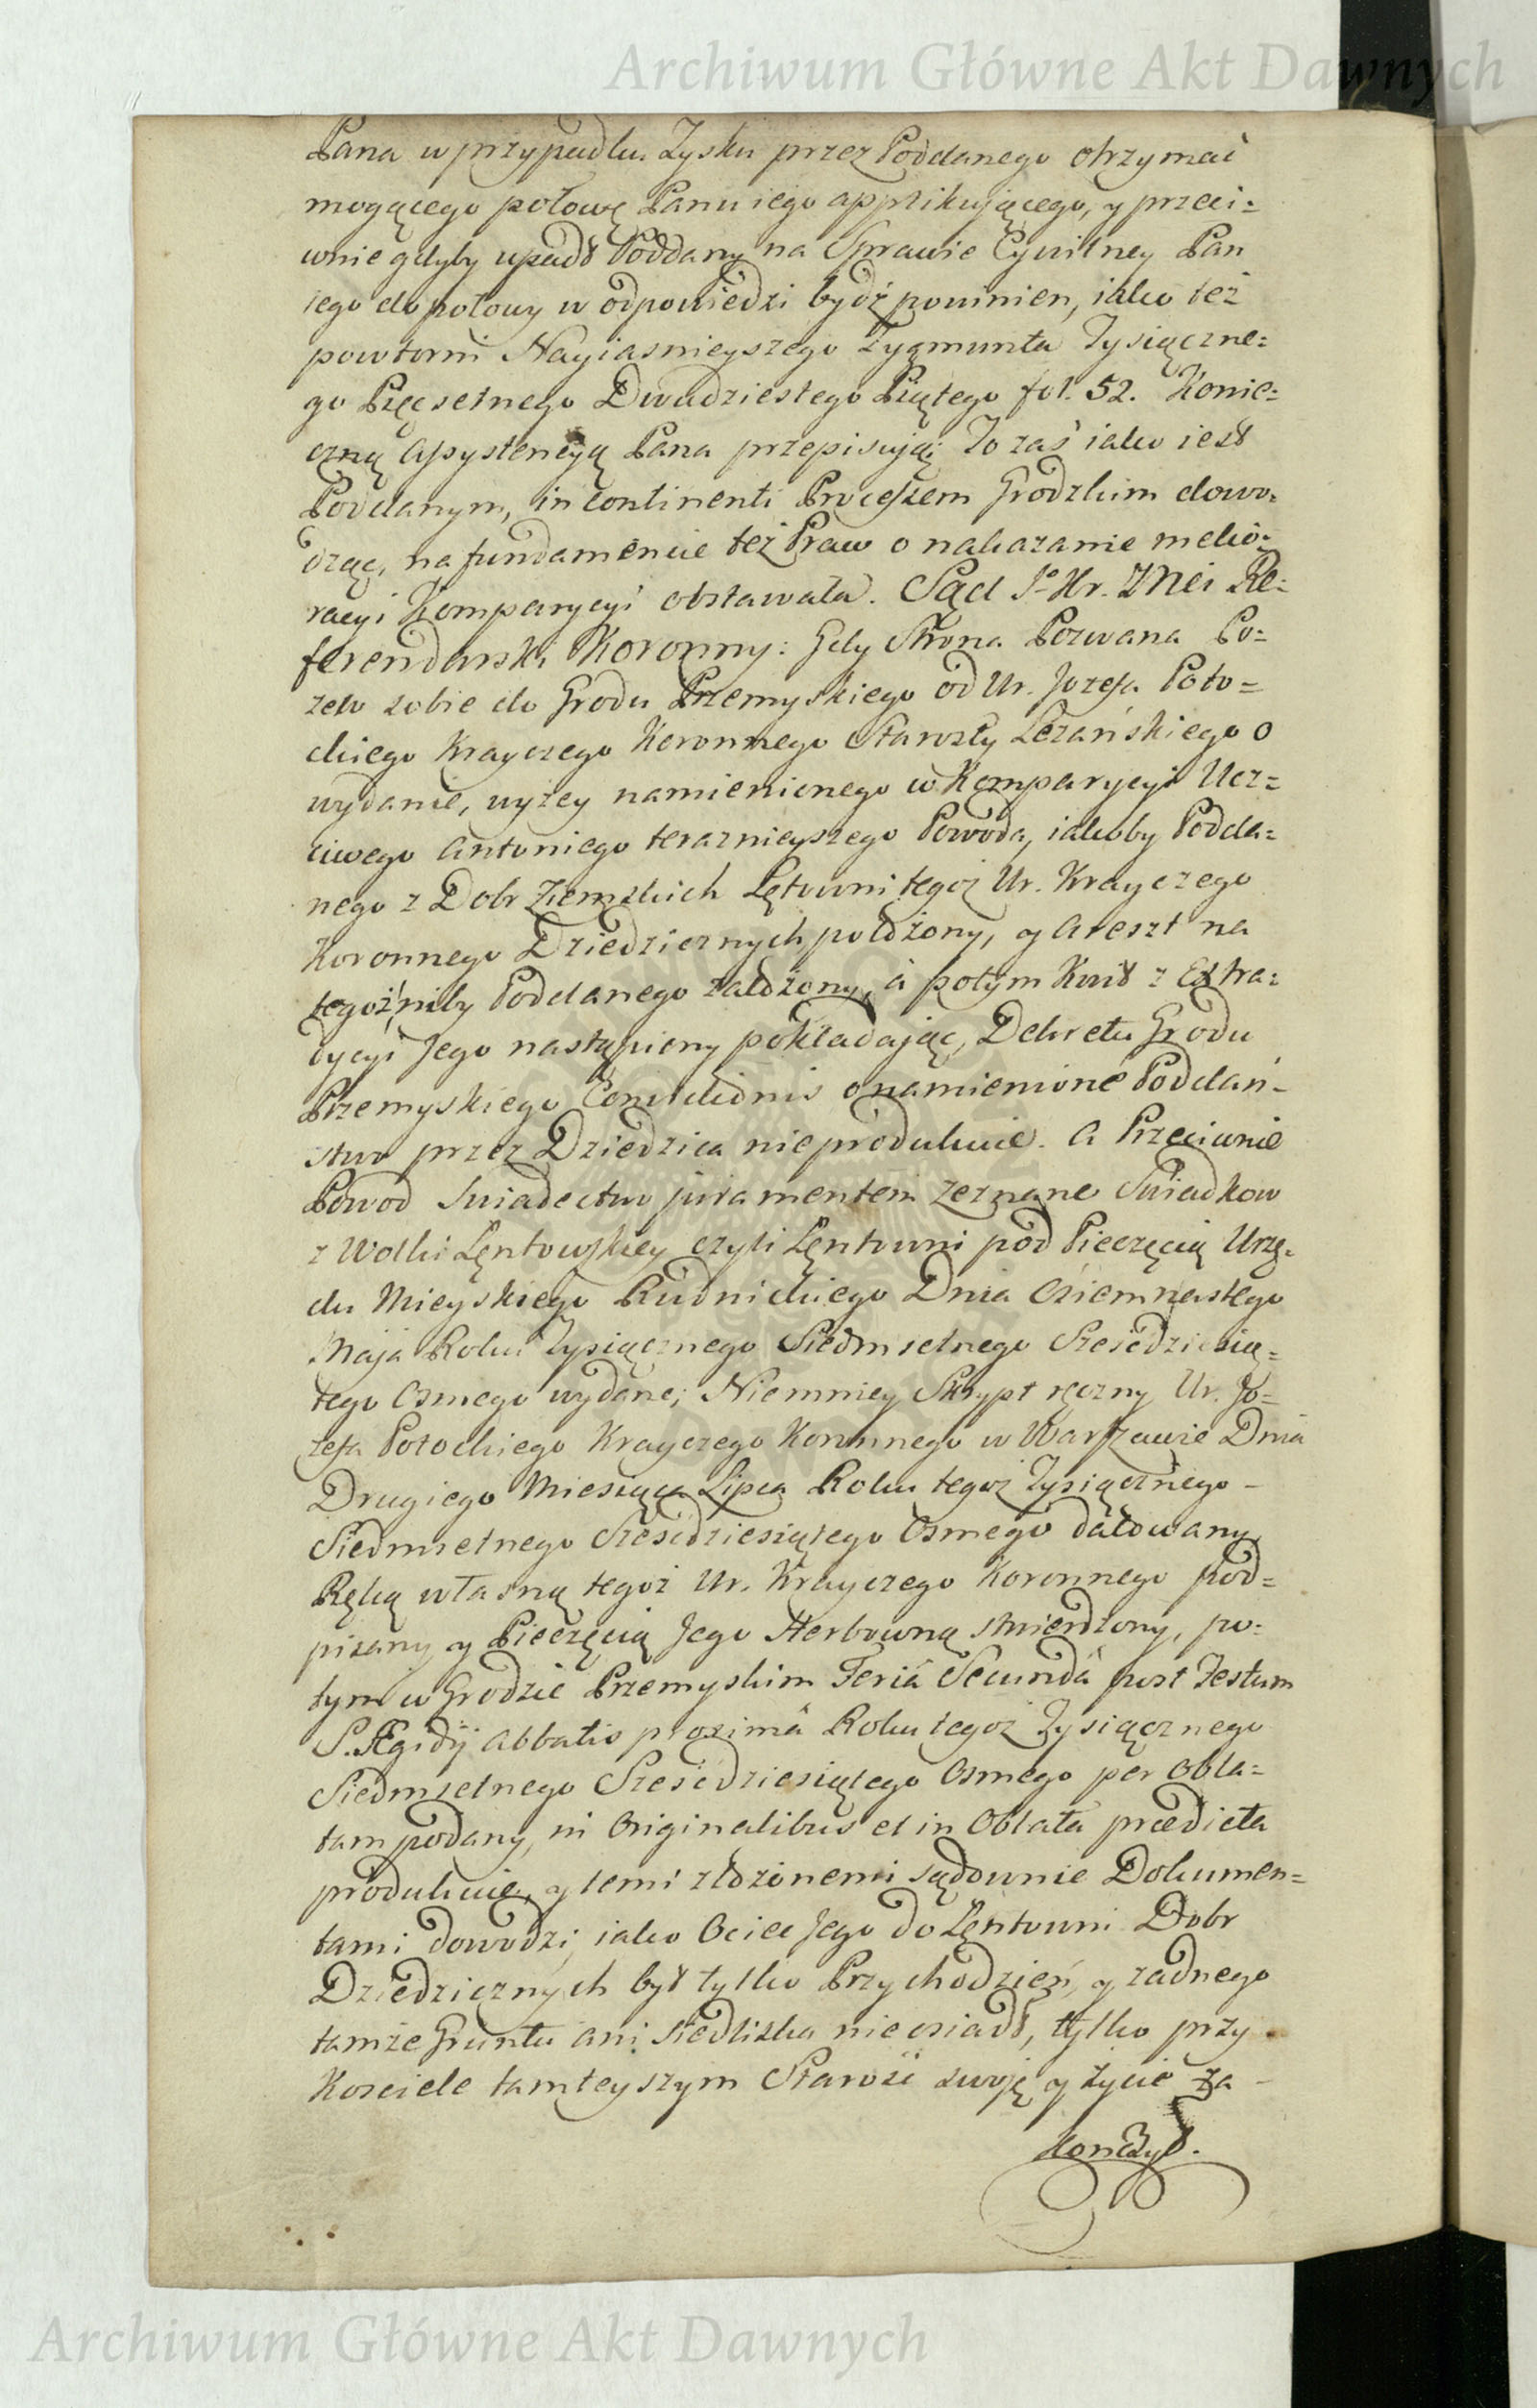 Archiwum Główne Akt Dawnych
Pana w przypadku Zysku przez Poddanego otrzymać
mogącego połowę Panu iego applikującego, y przeci=
wnie gdyby upadł Poddany na Sprawie Cywilney Pan
iego do połowy w odpowiedzi bydź powinien, iako też
powtorni Nayiasnieyszego Zygmunta Tysiączne=
go Pięcsetnego Dwudziestego Piątego fol. 52. Konie=
czną Assystencyą Pana przepisując To zaś iako iest
Poddanym, in continenti Processem Grodzkim dowo=
dząc, na fundamencie też Praw o nakazanie melio=
racyi Komparycyi obstawała. Sąd J. Kr. Mci Re=
ferendarski Koronny: Gdy Strona Pozwana Po=
zew sobie do Grodu Przemyskiego od Ur. Jozefa Poto=
ckiego Krayczego Koronnego Starosty Leżańskiego o
wydanie, wyżey namienionego w Komparycyi Ucz=
ciwego Antoniego teraznieyszego Powoda, iakoby Podda=
nego z Dobr Ziemskich Łętowni tegoż Ur. Krayczego
Koronnego Dziedzicznych położony, y Areszt na
tegoż niby Poddanego założony, á potym Kwit z Extra=
dycyi Jego nastąpiony pokładając, Dekretu Grodu
Przemyskiego Convictionis o namienione Poddań=
stwo przez Dziedzica nieprodukuie. A Przeciwnie
Powod Swiadectwo juramentem zeznane Swiadkow
z Wolki Lęntowskiey czyli Lęntowni pod Pieczęcią Urzę=
du Mieyskiego Rudnickiego Dnia Osiemnastego
Maja Roku Tysiącznego Siedmsetnego Sześcdziesią=
tego Osmego wydane; Niemniey Skrypt ręczny Ur. Jo=
zefa Potockiego Krayczego Koronnego w Warszawie Dnia
Drugiego Miesiąca Lipca Roku tegoż Tysiącznego -
Siedmsetnego Sześcdziesiątego Osmego datowany
Ręką własną tegoż Ur. Krayczego Koronnego pod=
pisany, y Pieczęcią Jego Herbowną stwierdzony, po=
tym w Grodzie Przemyskim Feriâ Secundâ post Festum
S. Ægidij Abbatis proximâ Roku tegoż Tysiącznego
Siedmsetnego Sześcdziesiątego Osmego per Obla=
tam podany, in Originalibus et in Oblata prædicta
produkuie, y temi złożonemi sądownie Dokumen=
tami dowodzi, iako Ociec Jego do Lęntowni Dobr
Dziedzicznych był tylko Przychodzień, y żadnego
tamże Gruntu ani Siedliska nieosiadł, tylko przy
Kosciele tamteyszym Starość swoję y życie za -
kończył.
Archiwum Główne Akt Dawnych